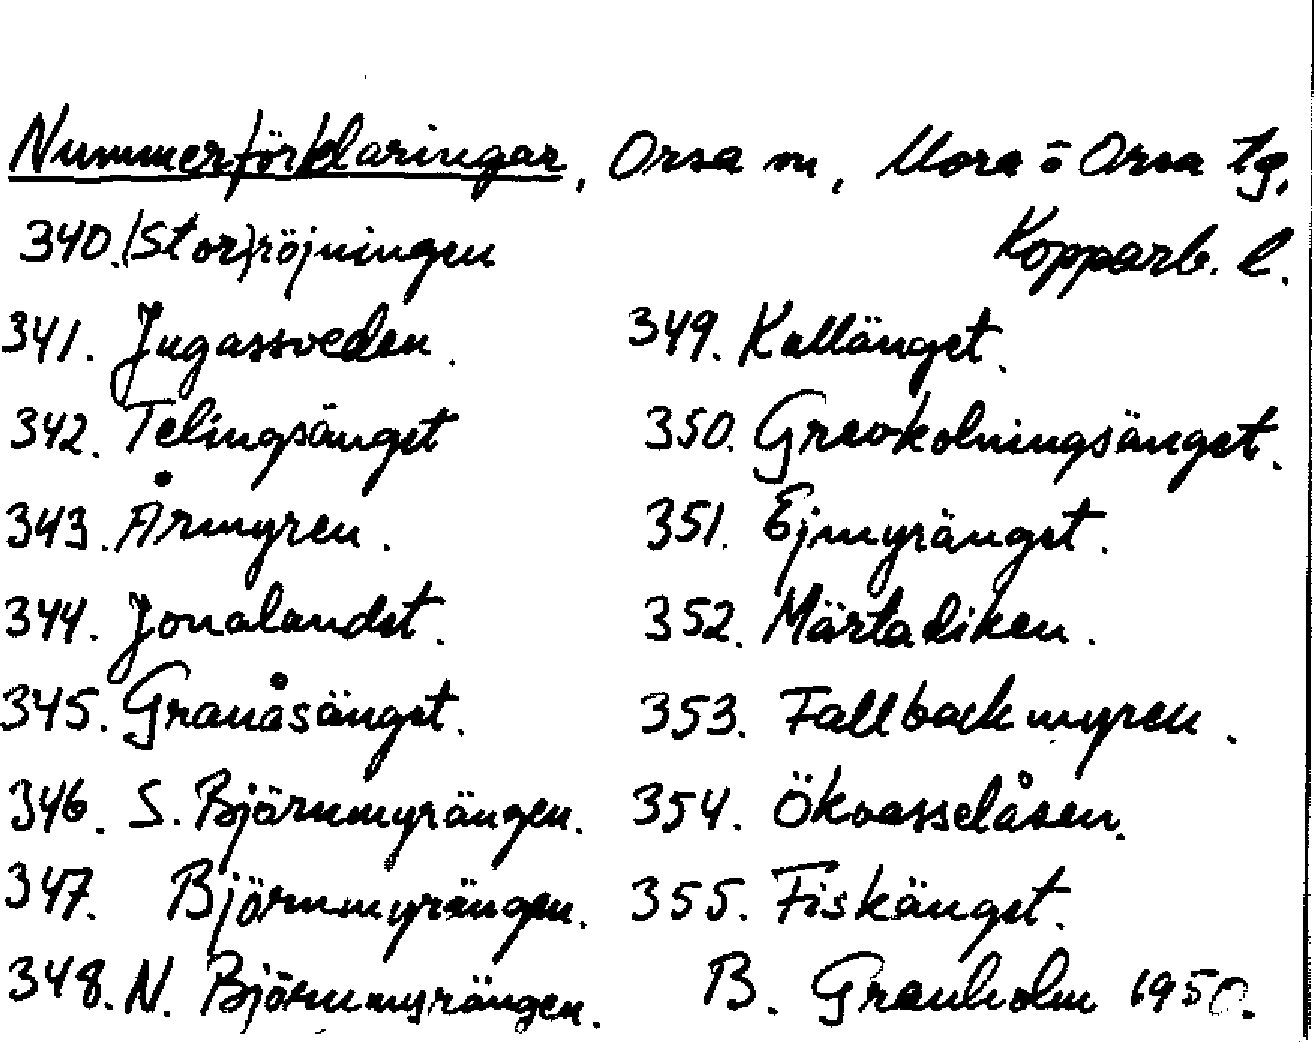 Nummerförklaringar, Orsa m, Mora o Orsa tg,
Kopparb. l.
340. (Stor)röjningen
341. Jugassveden.
342. Telingsänget
343. Årmyren.
344. Jonalandet.
345. Granåsänget.
346. S. Björnmyrängen.
347. Björnmyrängen.
348. N. Björnmyrängen.
349. Kallänget.
350. Gravkolningsänget.
351. Ejmyränget.
352. Märtadiken.
353. Fallbackmyren.
354. Ökvasselåsen.
355. Fiskänget.
B. Granholm 1950.